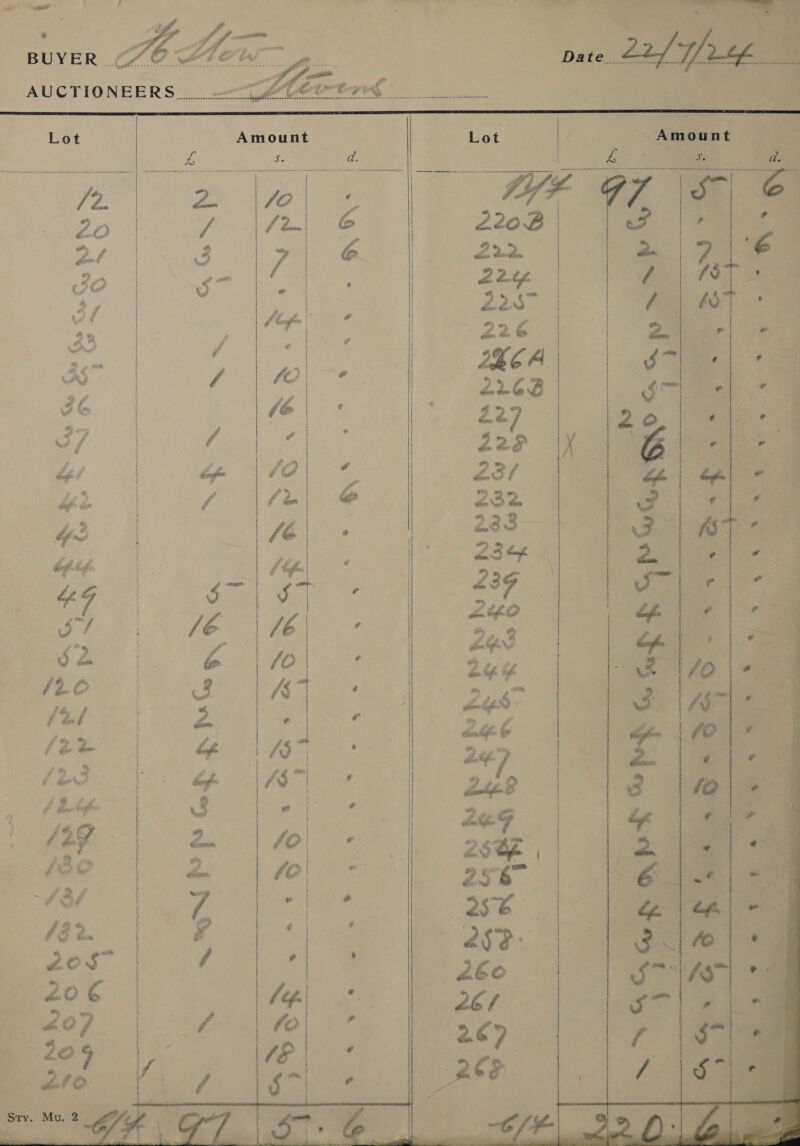 BUYER How Date 22/7/24
AUCTIONEERS Stevens
Lot Amount Lot Amount
£ s. d. £ s. d.
12 2 10 . B/F 97 5 6
20 1 12 6 220B 3 . .
21 3 7 6 222 2 7 6
30 5 . . 224 1 15 .
31 14 . 225 1 15 .
33 1 . . 226 2 . .
35 1 10 . 226A 5 . .
36 16 . 226B 5 . .
37 1 . . 227 20 . .
41 4 10 . 228 X 6 . .
42 1 12 6 231 4 4 .
43 16 . 232 3 . .
44 14 . 233 3 15 .
49 5 5 . 234 2 . .
51 16 16 . 239 5 . .
52 6 10 . 240 4 . .
120 3 15 . 243 4 . .
121 2 . . 244 3 10 .
122 4 15 . 245 3 15 .
123 4 15 . 246 4 10 .
124 3 . . 247 2 . .
129 2 10 . 248 3 10 .
130 2 10 . 249 4 . .
131 7 . . 2 . .
132 8 . . 255 6 . .
205 1 . . 256 4 4 .
206 14 . 258 3 10 .
207 1 10 . 260 5 15 .
209 18 . 261 5 . .
210 1 5 . 267 1 5 .
268 1 5 .
Sry. Mu. 2 C/F 97 5 . 6 C/F 220 . 6 .